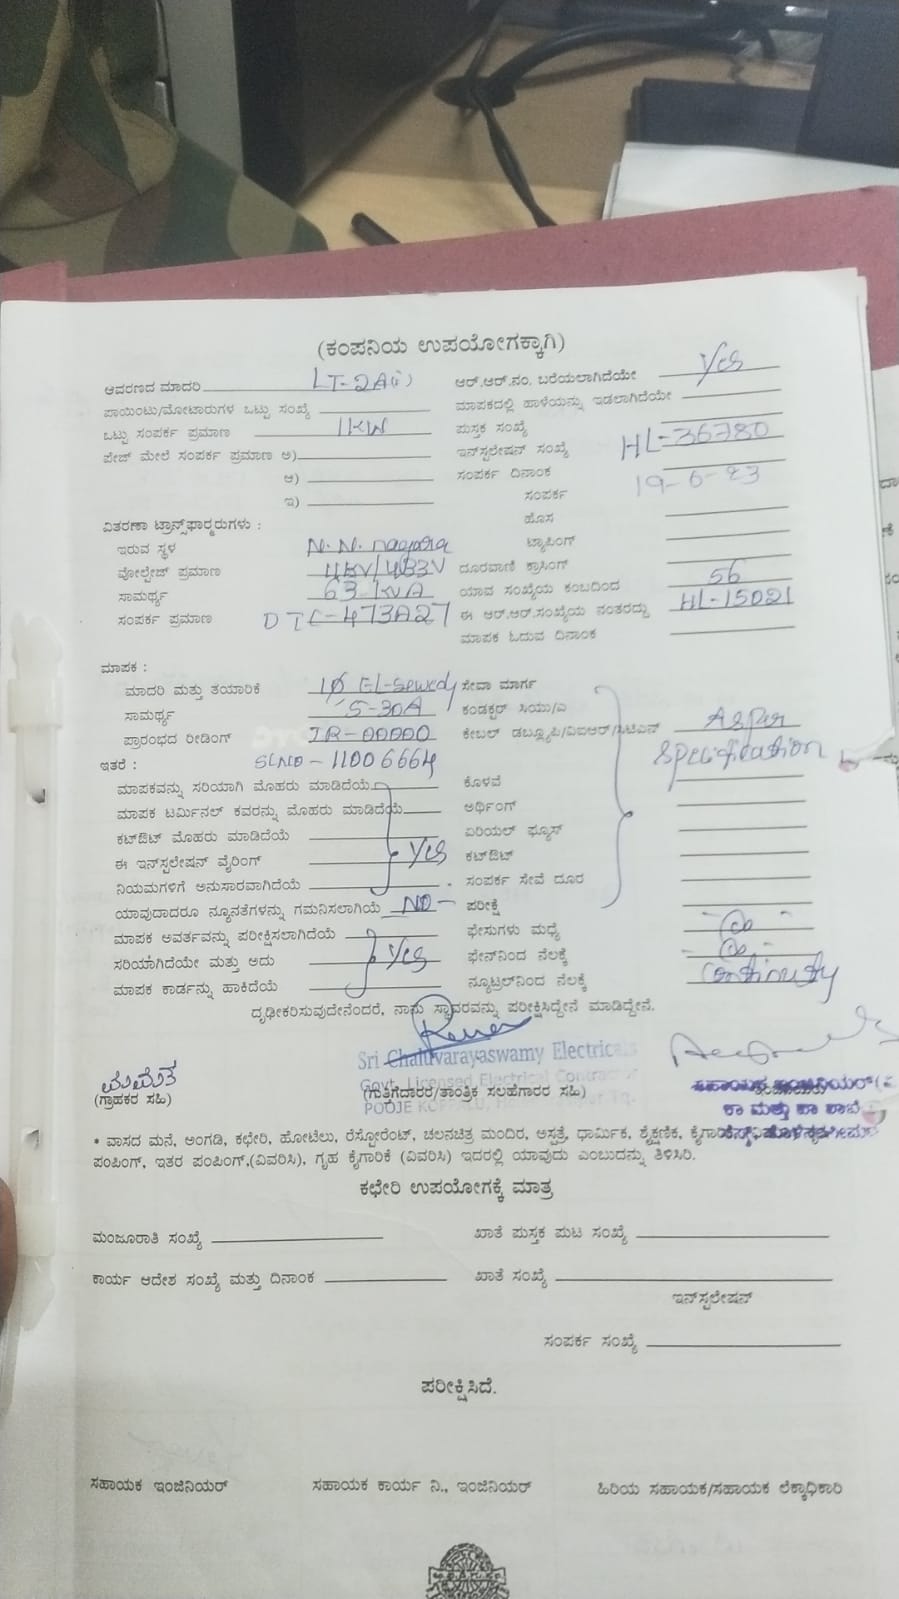 (ಕಂಪನಿಯ ಉಪಯೋಗಕ್ಕಾಗಿ)
ಆವರಣದ ಮಾದರಿ LT-2A(i) ಆರ್.ಆರ್.ನಂ. ಬರೆಯಲಾಗಿದೆಯೇ Yes
ಪಾಯಿಂಟು/ಮೋಟಾರುಗಳ ಒಟ್ಟು ಸಂಖ್ಯೆ ಮಾಪಕದಲ್ಲಿ ಹಾಳೆಯನ್ನು ಇಡಲಾಗಿದೆಯೇ
ಒಟ್ಟು ಸಂಪರ್ಕ ಪ್ರಮಾಣ 1KW ಪುಸ್ತಕ ಸಂಖ್ಯೆ
ಪೇಜ್ ಮೇಲೆ ಸಂಪರ್ಕ ಪ್ರಮಾಣ ಅ) ಇನ್‌ಸ್ಟಲೇಷನ್ ಸಂಖ್ಯೆ HL-36780
ಆ) ಸಂಪರ್ಕ ದಿನಾಂಕ 19-6-23
ಇ) ಸಂಪರ್ಕ
ಹೊಸ
ವಿತರಣಾ ಟ್ರಾನ್ಸ್‌ಫಾರ್ಮರುಗಳು :
ಇರುವ ಸ್ಥಳ N.N. nagara ಟ್ಯಾಪಿಂಗ್
ವೋಲ್ಟೇಜ್ ಪ್ರಮಾಣ ದೂರವಾಣಿ ಕ್ರಾಸಿಂಗ್
ಸಾಮರ್ಥ್ಯ 63 KVA ಯಾವ ಸಂಖ್ಯೆಯ ಕಂಬದಿಂದ 56
ಸಂಪರ್ಕ ಪ್ರಮಾಣ DTC-473A27 ಈ ಆರ್.ಆರ್.ಸಂಖ್ಯೆಯ ನಂತರದ್ದು HL-15021
ಮಾಪಕ ಓದುವ ದಿನಾಂಕ
ಮಾಪಕ :
ಮಾದರಿ ಮತ್ತು ತಯಾರಿಕೆ 1Ø El-Sewedy ಸೇವಾ ಮಾರ್ಗ
ಸಾಮರ್ಥ್ಯ 5-30A ಕಂಡಕ್ಟರ್ ಸಿಯು/ಎ
ಪ್ರಾರಂಭದ ರೀಡಿಂಗ್ IR-00000 ಕೇಬಲ್ ಡಬ್ಲ್ಯೂಪಿ/ವಿಐಆರ್/ಸಿಟಿಎಸ್ Asper
ಇತರೆ : SLNO-11006664 Specification
ಮಾಪಕವನ್ನು ಸರಿಯಾಗಿ ಮೊಹರು ಮಾಡಿದೆಯೆ ಕೊಳವೆ
ಮಾಪಕ ಟರ್ಮಿನಲ್ ಕವರನ್ನು ಮೊಹರು ಮಾಡಿದೆಯೆ ಅರ್ಥಿಂಗ್
ಕಟ್‌ಔಟ್ ಮೊಹರು ಮಾಡಿದೆಯೆ ಏರಿಯಲ್ ಫ್ಯೂಸ್
ಈ ಇನ್‌ಸ್ಟಲೇಷನ್ ವೈರಿಂಗ್ Yes ಕಟ್‌ಔಟ್
ನಿಯಮಗಳಿಗೆ ಅನುಸಾರವಾಗಿದೆಯೆ ಸಂಪರ್ಕ ಸೇವೆ ದೂರ
ಯಾವುದಾದರೂ ನ್ಯೂನತೆಗಳನ್ನು ಗಮನಿಸಲಾಗಿಯೆ NO ಪರೀಕ್ಷೆ
ಮಾಪಕ ಆವರ್ತವನ್ನು ಪರೀಕ್ಷಿಸಲಾಗಿದೆಯೆ ಫೇಸುಗಳು ಮಧ್ಯೆ
ಸರಿಯಾಗಿದೆಯೇ ಮತ್ತು ಅದು Yes ಫೇಸ್‌ನಿಂದ ನೆಲಕ್ಕೆ
ಮಾಪಕ ಕಾರ್ಡನ್ನು ಹಾಕಿದೆಯೆ ನ್ಯೂಟ್ರಲ್‌ನಿಂದ ನೆಲಕ್ಕೆ Continuity
ದೃಢೀಕರಿಸುವುದೇನೆಂದರೆ, ನಾನು ಸ್ಥಾವರವನ್ನು ಪರೀಕ್ಷಿಸಿದ್ದೇನೆ ಮಾಡಿದ್ದೇನೆ.
Sri Chaluvarayaswamy Electricals
Govt. Licensed Electrical Contractor
(ಗ್ರಾಹಕರ ಸಹಿ) (ಗುತ್ತಿಗೆದಾರರ/ತಾಂತ್ರಿಕ ಸಲಹೆಗಾರರ ಸಹಿ)
POOJE KOPPALU,
ಕಾ ಮತ್ತು ಪಾ ಶಾಖೆ
* ವಾಸದ ಮನೆ, ಅಂಗಡಿ, ಕಛೇರಿ, ಹೋಟೆಲು, ರೆಸ್ಟೋರೆಂಟ್, ಚಲನಚಿತ್ರ ಮಂದಿರ, ಅಸ್ಪತ್ರೆ, ಧಾರ್ಮಿಕ, ಶೈಕ್ಷಣಿಕ,
ಪಂಪಿಂಗ್, ಇತರ ಪಂಪಿಂಗ್,(ವಿವರಿಸಿ), ಗೃಹ ಕೈಗಾರಿಕೆ (ವಿವರಿಸಿ) ಇದರಲ್ಲಿ ಯಾವುದು ಎಂಬುದನ್ನು ತಿಳಿಸಿರಿ.
ಕಛೇರಿ ಉಪಯೋಗಕ್ಕೆ ಮಾತ್ರ
ಮಂಜೂರಾತಿ ಸಂಖ್ಯೆ ಖಾತೆ ಪುಸ್ತಕ ಪುಟ ಸಂಖ್ಯೆ
ಕಾರ್ಯ ಆದೇಶ ಸಂಖ್ಯೆ ಮತ್ತು ದಿನಾಂಕ ಖಾತೆ ಸಂಖ್ಯೆ
ಇನ್‌ಸ್ಟಲೇಷನ್
ಸಂಪರ್ಕ ಸಂಖ್ಯೆ
ಪರೀಕ್ಷಿಸಿದೆ.
ಸಹಾಯಕ ಇಂಜಿನಿಯರ್ ಸಹಾಯಕ ಕಾರ್ಯ ನಿ., ಇಂಜಿನಿಯರ್ ಹಿರಿಯ ಸಹಾಯಕ/ಸಹಾಯಕ ಲೆಕ್ಕಾಧಿಕಾರಿ